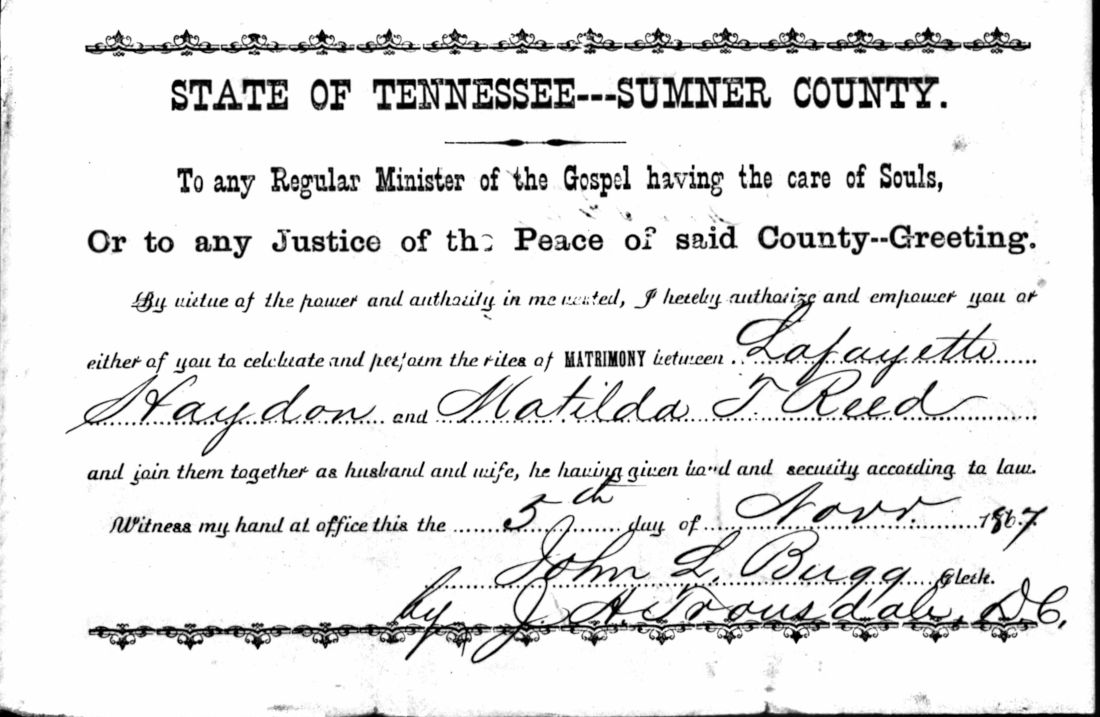 STATE OF TENNESSEE---SUMNER COUNTY.
To any Regular Minister of the Gospel having the care of Souls,
Or to any Justice of the Peace of said County--Greeting.
By virtue of the power and authority in me vested, I hereby authorize and empower you or
either of you to celebrate and perform the rites of MATRIMONY between Lafayette
Haydon and Matilda T. Reed
and join them together as husband and wife, he having given bond and security according to law.
Witness my hand at office this the 5th day of Novr. 1867
John L. Bugg Clerk.
by J. H. Trousdale, D.C.